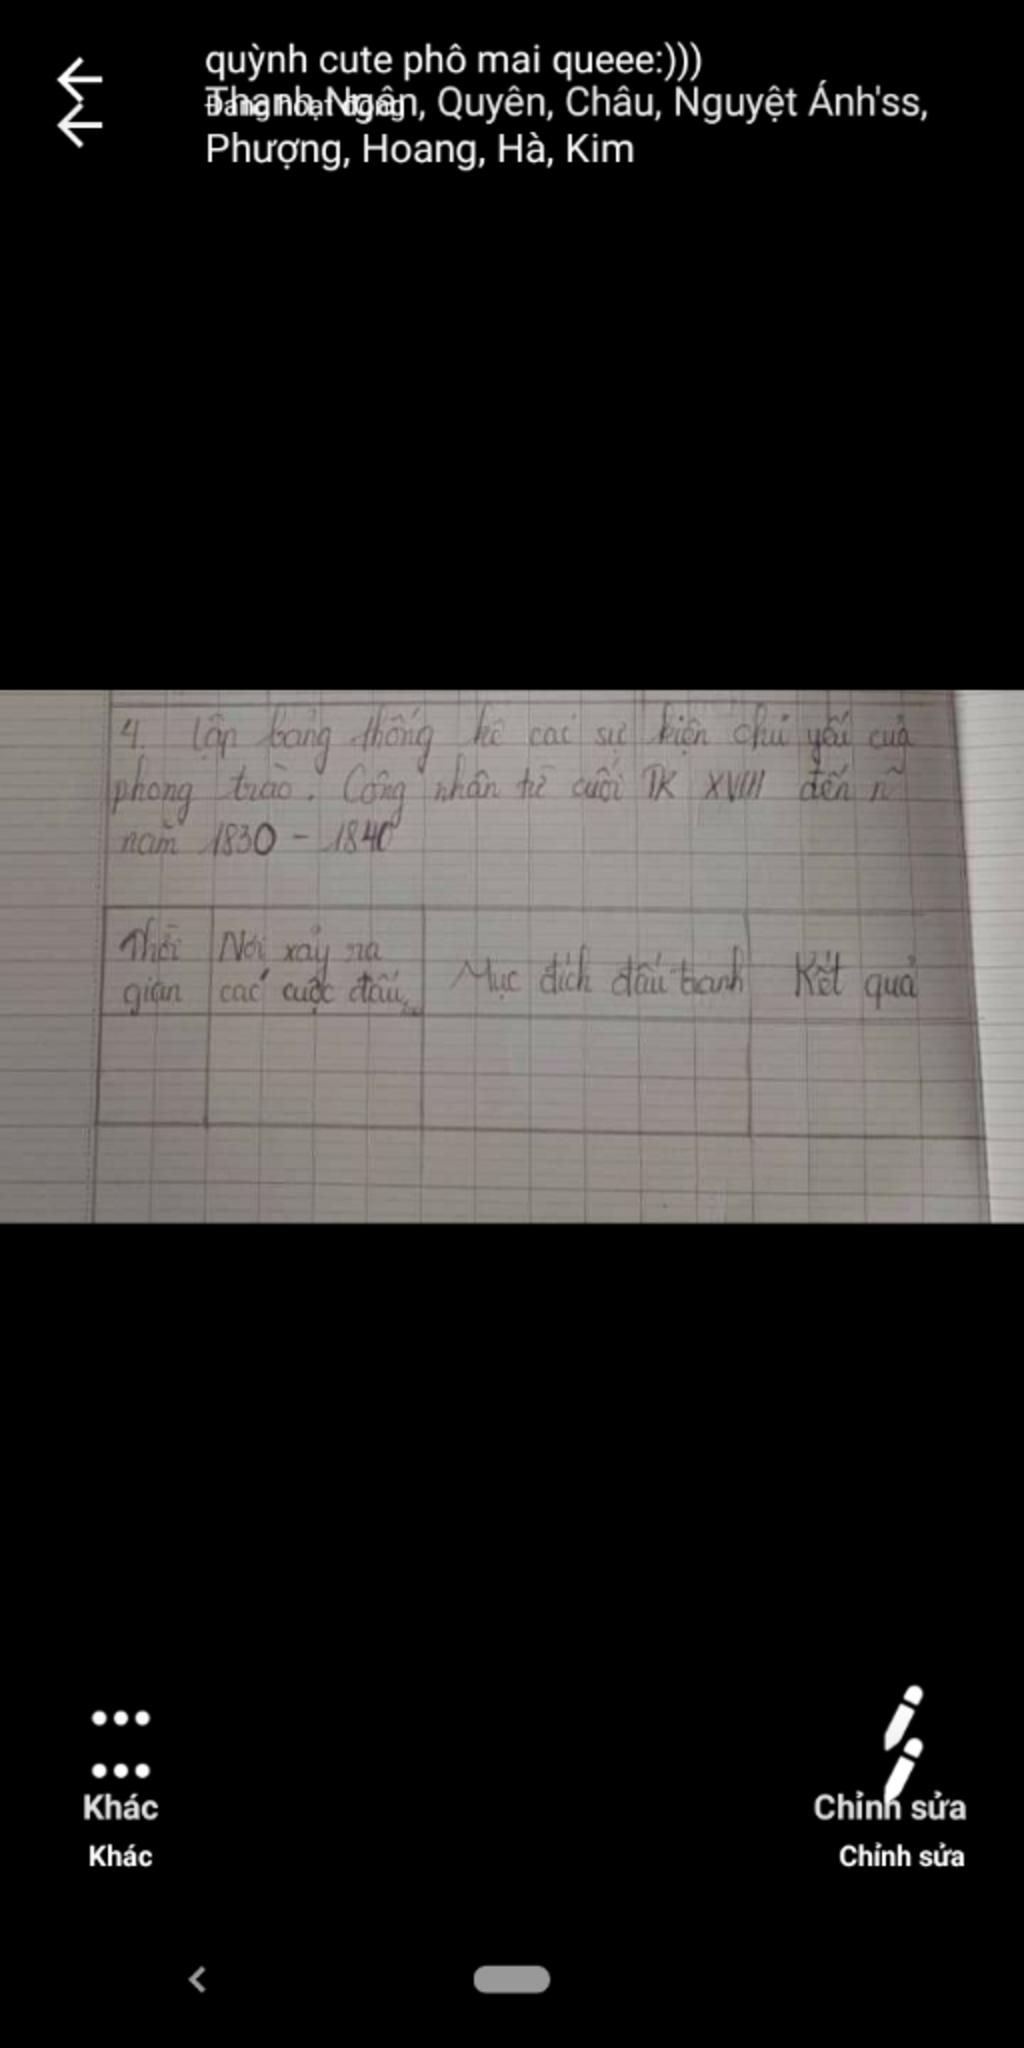 quỳnh cute phô mai queee:)))
Đang hoạt động
Thanh Ngân, Quyên, Châu, Nguyệt Ánh'ss,
Phượng, Hoang, Hà, Kim
4. Lập bảng thống kê các sự kiện chủ yếu của
phong trào. Công nhân từ cuối TK XVIII đến n
năm 1830 - 1840
Thời gian
Nơi xảy ra
các cuộc đấu
Mục đích đấu tranh
Kết quả
Khác
Khác
Chỉnh sửa
Chỉnh sửa